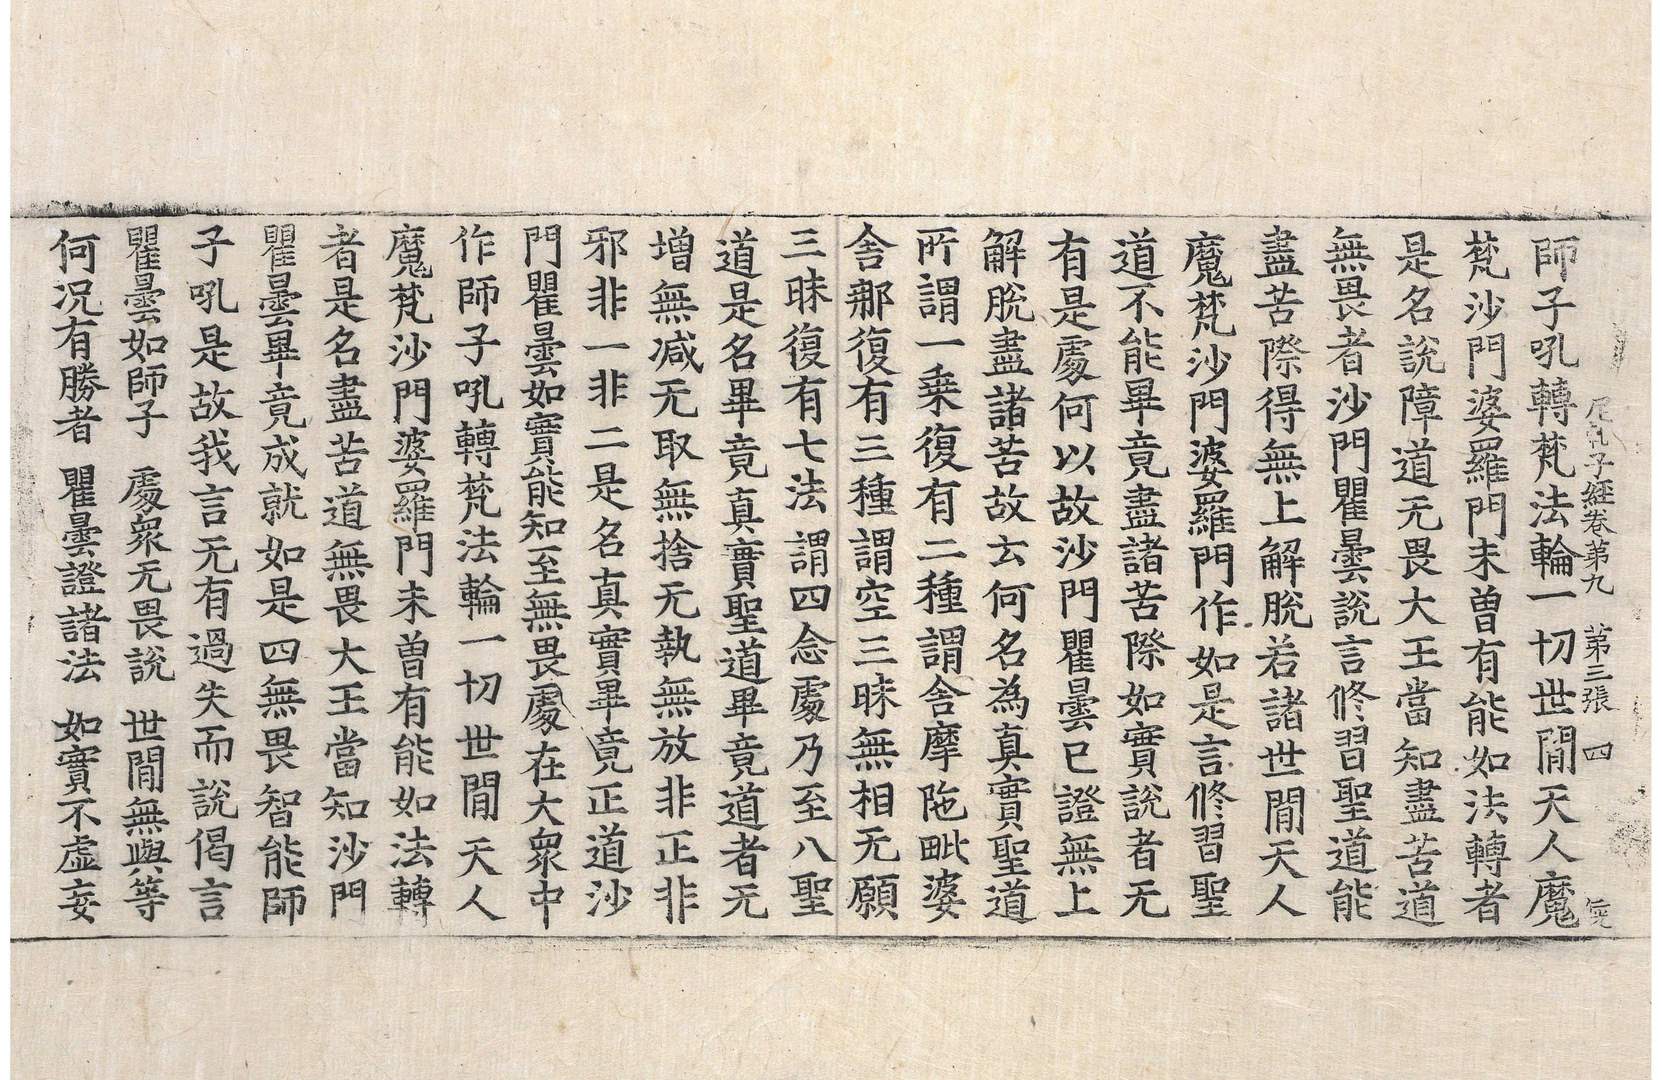 尼乹子経卷第九 第三張 四
師子吼轉梵法輪一切世閒天人魔
梵沙門婆羅門未曽有能如法轉者
是名說障道无畏大王當知盡苦道
無畏者沙門瞿曇說言修習聖道能
盡苦際得無上解脫若諸世閒天人
魔梵沙門婆羅門作如是言修習聖
道不能畢竟盡諸苦際如實說者无
有是䖏何以故沙門瞿曇已證無上
解脫盡諸苦故云何名為真實聖道
所謂一乗復有二種謂舎摩陁毗婆
舎那復有三種謂空三昧無相无願
三昧復有七法謂四念䖏乃至八聖
道是名畢竟真實聖道畢竟道者无
增無减无取無捨无執無放非正非
邪非一非二是名真實畢竟正道沙
門瞿曇如實能知至無畏䖏在大衆中
作師子吼轉梵法輪一切世閒天人
魔梵沙門婆羅門未曽有能如法轉
者是名盡苦道無畏大王當知沙門
瞿曇畢竟成就如是四無畏智能師
子吼是故我言无有過失而說偈言
瞿曇如師子 䖏衆无畏說 世閒無與等
何况有勝者 瞿曇證諸法 如實不虛妄